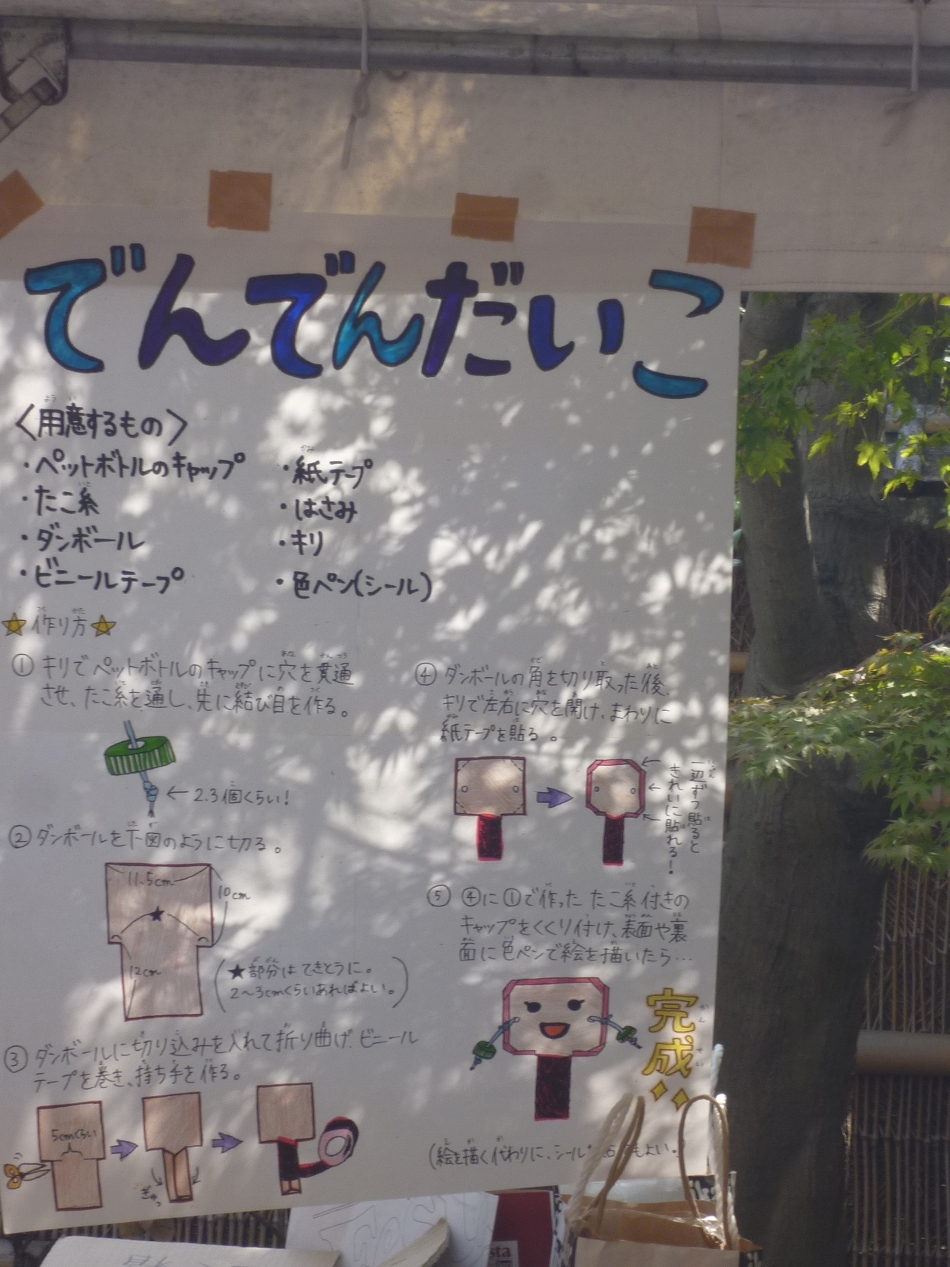 でんでんだいこ
〈用意するもの〉
・ペットボトルのキャップ
・たこ糸
・ダンボール
・ビニールテープ
・紙テープ
・はさみ
・キリ
・色ペン(シール)
☆作り方☆
① キリでペットボトルのキャップに穴を貫通
させ、たこ糸を通し、先に結び目を作る。
← 2.3個くらい!
② ダンボールを下図のように切る。
11.5cm
10cm
★
12cm
(★部分はてきとうに。
2〜3cmくらいあればよい。)
③ ダンボールに切り込みを入れて折り曲げ、ビニール
テープを巻き、持ち手を作る。
5cmくらい
ぎゅっ
④ ダンボールの角を切り取った後、
キリで左右に穴を開け、まわりに
紙テープを貼る。
一辺ずつ貼ると
きれいに貼れる!
⑤ ④に①で作った たこ糸付きの
キャップをくくり付け、表面や裏
面に色ペンで絵を描いたら…
完成
(絵を描く代わりに、シール もよい。
sta